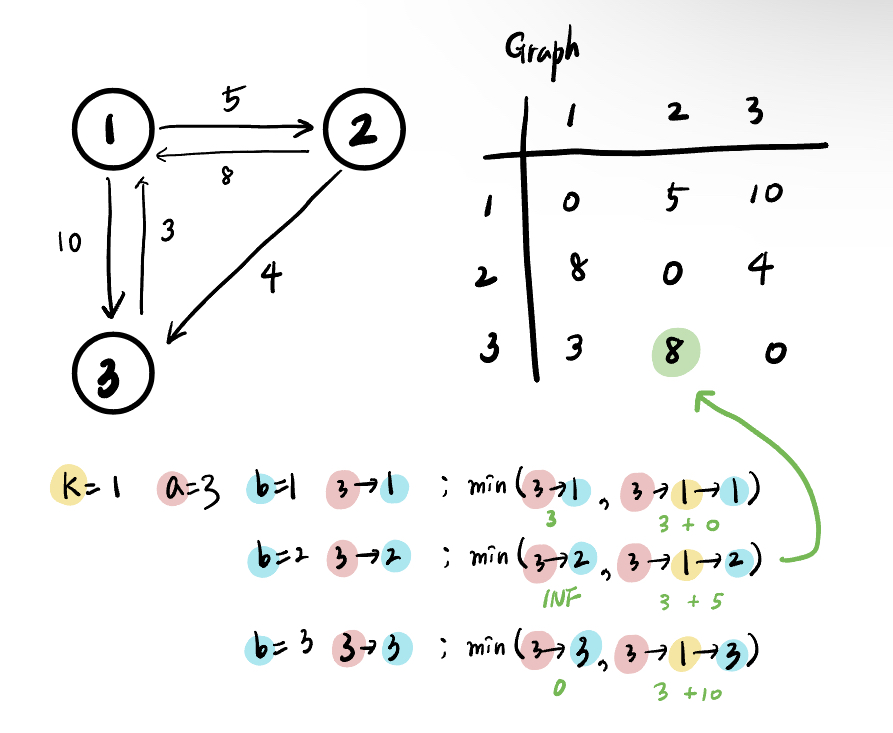 Graph
1 5 2
8
10 3 4
3
1 2 3
1 0 5 10
2 8 0 4
3 3 8 0
k=1 a=3 b=1 3→1 ; min(3→1, 3→1→1)
3 3+0
b=2 3→2 ; min(3→2, 3→1→2)
INF 3+5
b=3 3→3 ; min(3→3, 3→1→3)
0 3+10